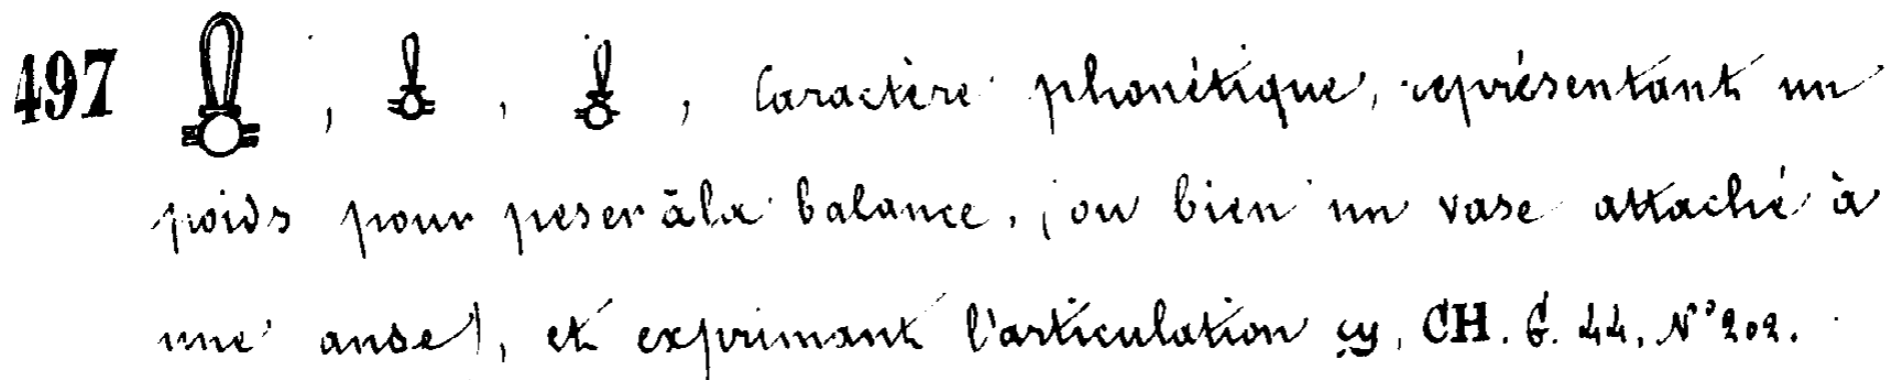 497 , , , Caractère phonétique, représentant un
poids pour peser à la balance, (ou bien un vase attaché à
une anse), et exprimant l'articulation ϣ, CH. G. 44, N° 202.